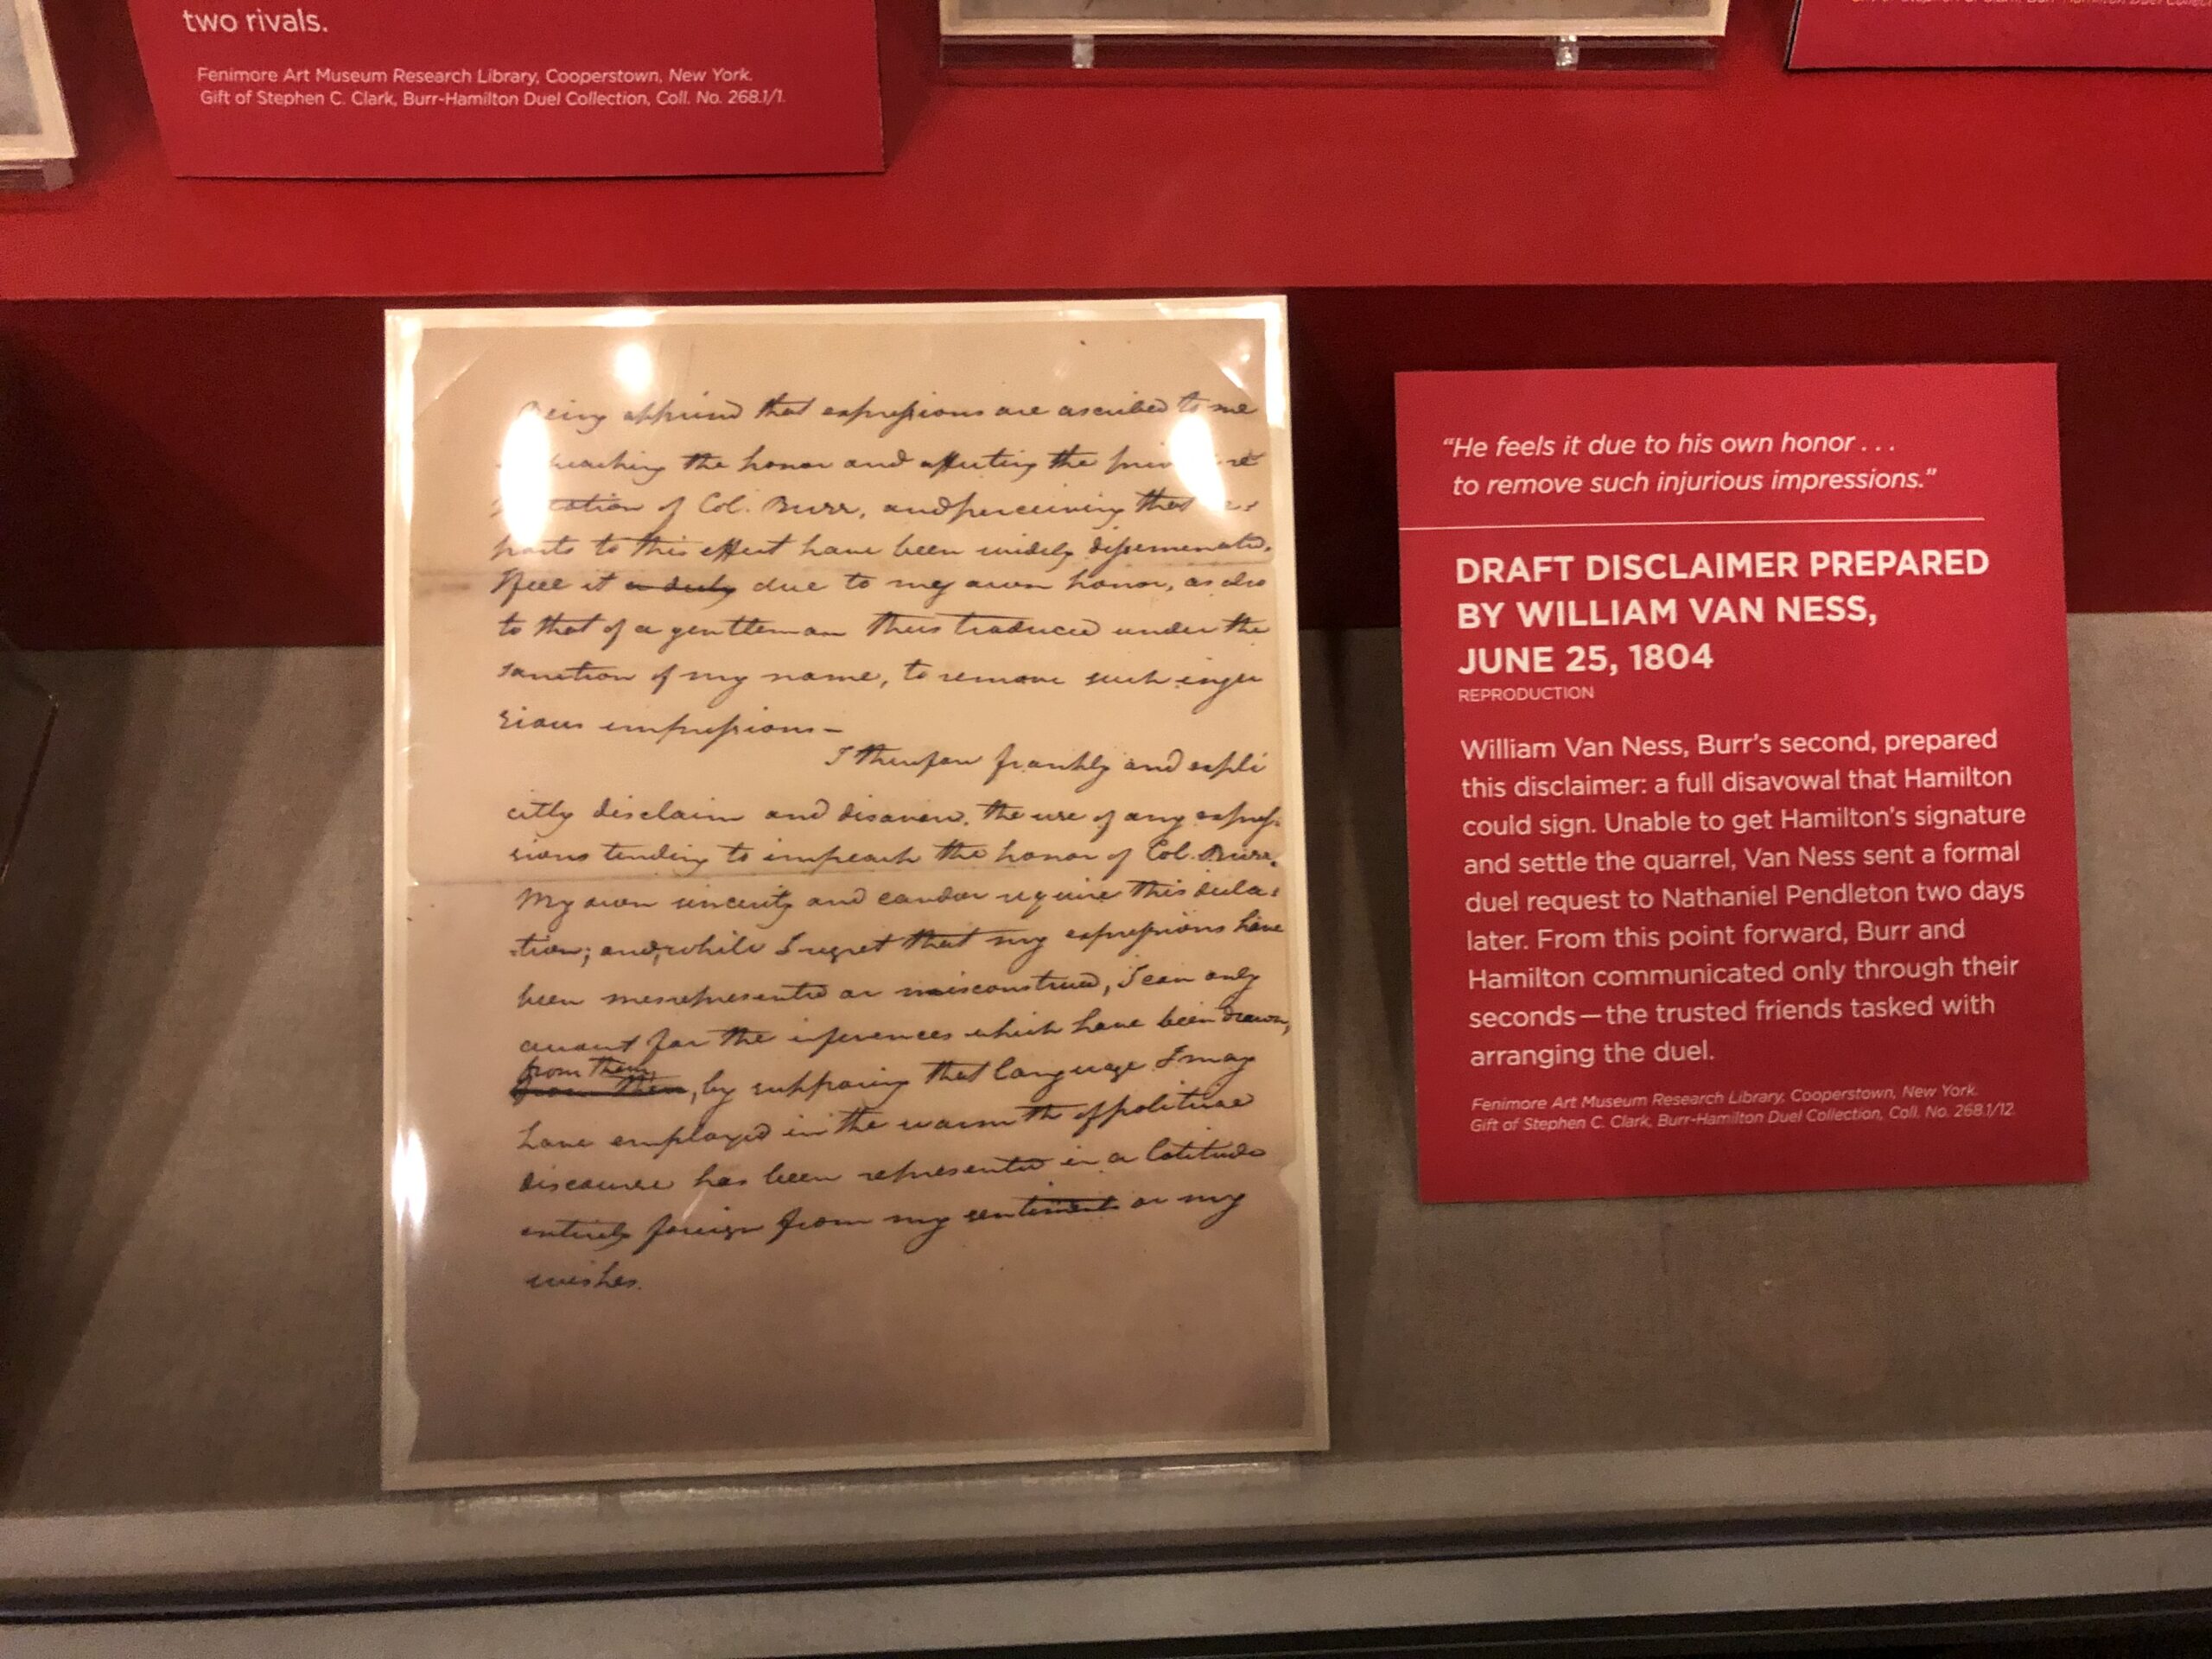 two rivals.
Fenimore Art Museum Research Library, Cooperstown, New York.
Gift of Stephen C. Clark, Burr-Hamilton Duel Collection, Coll. No. 268.1/1.
Being apprised that expressions are ascribed to me
the honor and affecting the
of Col. Burr, and perceiving that
ports to this effect have been widely disseminated,
I feel it a duty due to my own honor, as also
to that of a gentleman thus traduced under the
sanction of my name, to remove such inju
rious impressions —
I therefore frankly and expli
citly disclaim and disavow, the use of any expres-
sions tending to impeach the honor of Col. Burr.
My own sincerity and candor require this decla-
tion; and, while I regret that my expressions have
been misrepresented or misconstrued, I can only
account for the inferences which have been drawn,
from them,
from them, by supposing that language I may
have employed in the warmth of political
discourse has been represented in a latitude
entirely foreign from my sentiment or my
wishes.
"He feels it due to his own honor . . .
to remove such injurious impressions."
DRAFT DISCLAIMER PREPARED
BY WILLIAM VAN NESS,
JUNE 25, 1804
REPRODUCTION
William Van Ness, Burr's second, prepared
this disclaimer: a full disavowal that Hamilton
could sign. Unable to get Hamilton's signature
and settle the quarrel, Van Ness sent a formal
duel request to Nathaniel Pendleton two days
later. From this point forward, Burr and
Hamilton communicated only through their
seconds—the trusted friends tasked with
arranging the duel.
Fenimore Art Museum Research Library, Cooperstown, New York.
Gift of Stephen C. Clark, Burr-Hamilton Duel Collection, Coll. No. 268.1/12.